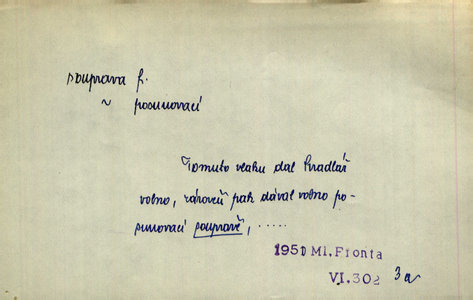 souprava f.
~ posunovací
Tomuto vlaku dal Hradlář
volno, zároveň pak dával volno po-
sunovací soupravě, .....
1950 Ml. Fronta
VI. 302 3a